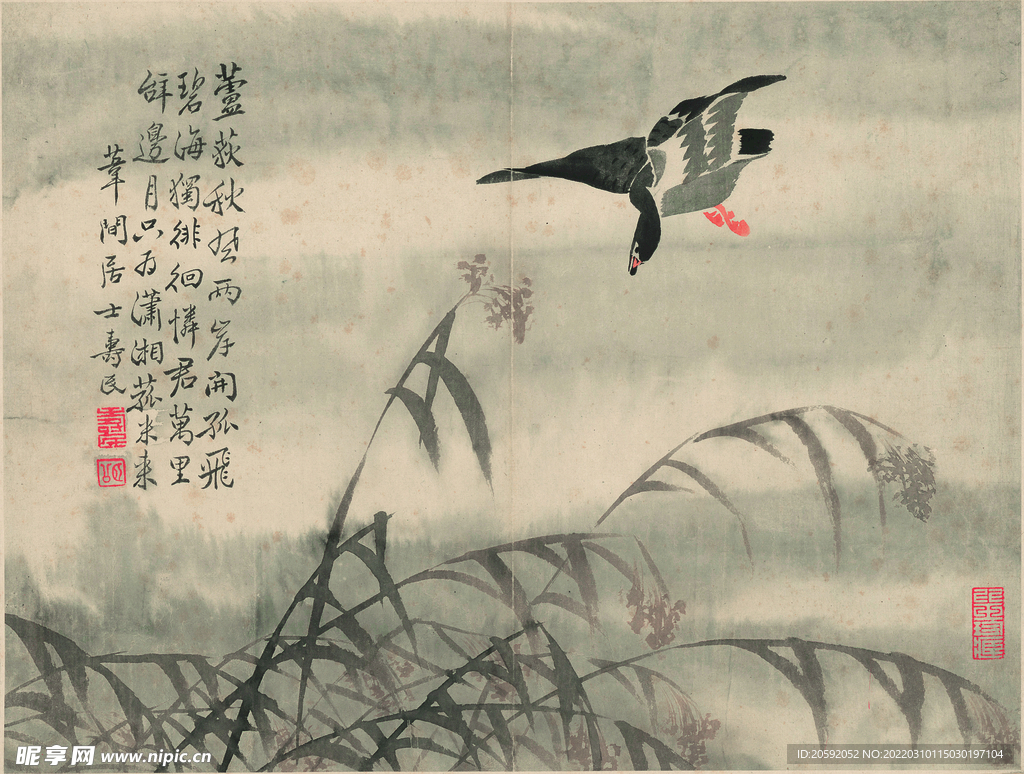 蘆荻秋花两岸開孤飛
碧海獨徘徊憐君萬里
辞邊月只为瀟湘菰米来
葦間居士壽民
昵享网 www.nipic.cn
ID:20592052 NO:20220310115030197104